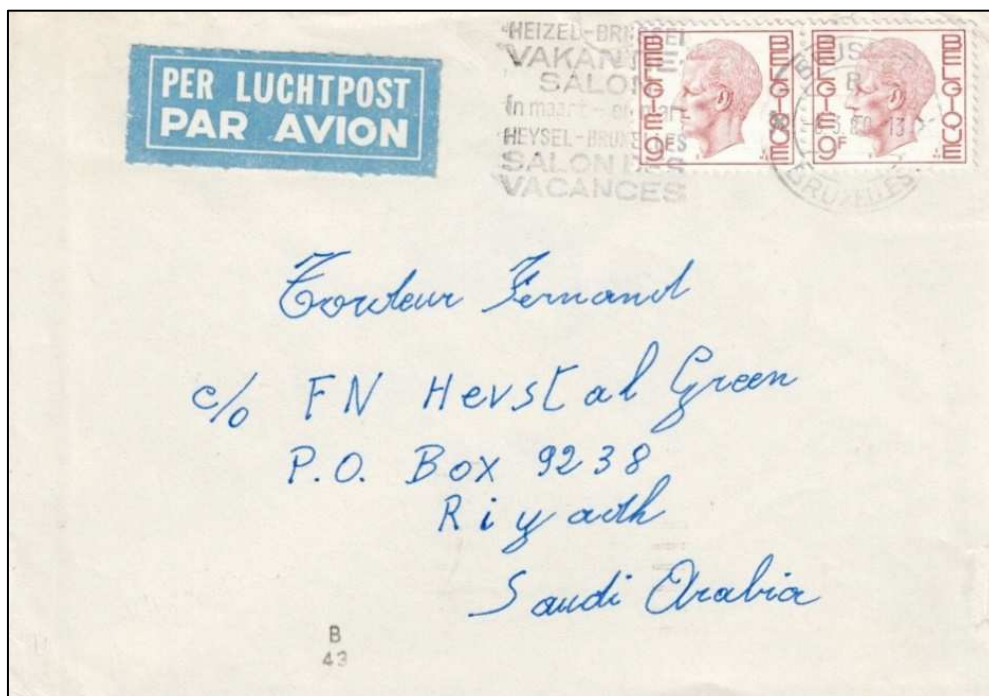 PER LUCHTPOST
PAR AVION
HEIZEL-BRUSSEL
VAKANTIE
SALON
in maart - en mars
HEYSEL-BRUXELLES
SALON DES
VACANCES
BELGIE BELGIQUE
BELGIE BELGIQUE
9F
BRUXELLES
Tordeur Fernand
c/o FN Herstal Green
P.O. Box 9238
Riyadh
Saudi Arabia
B
43